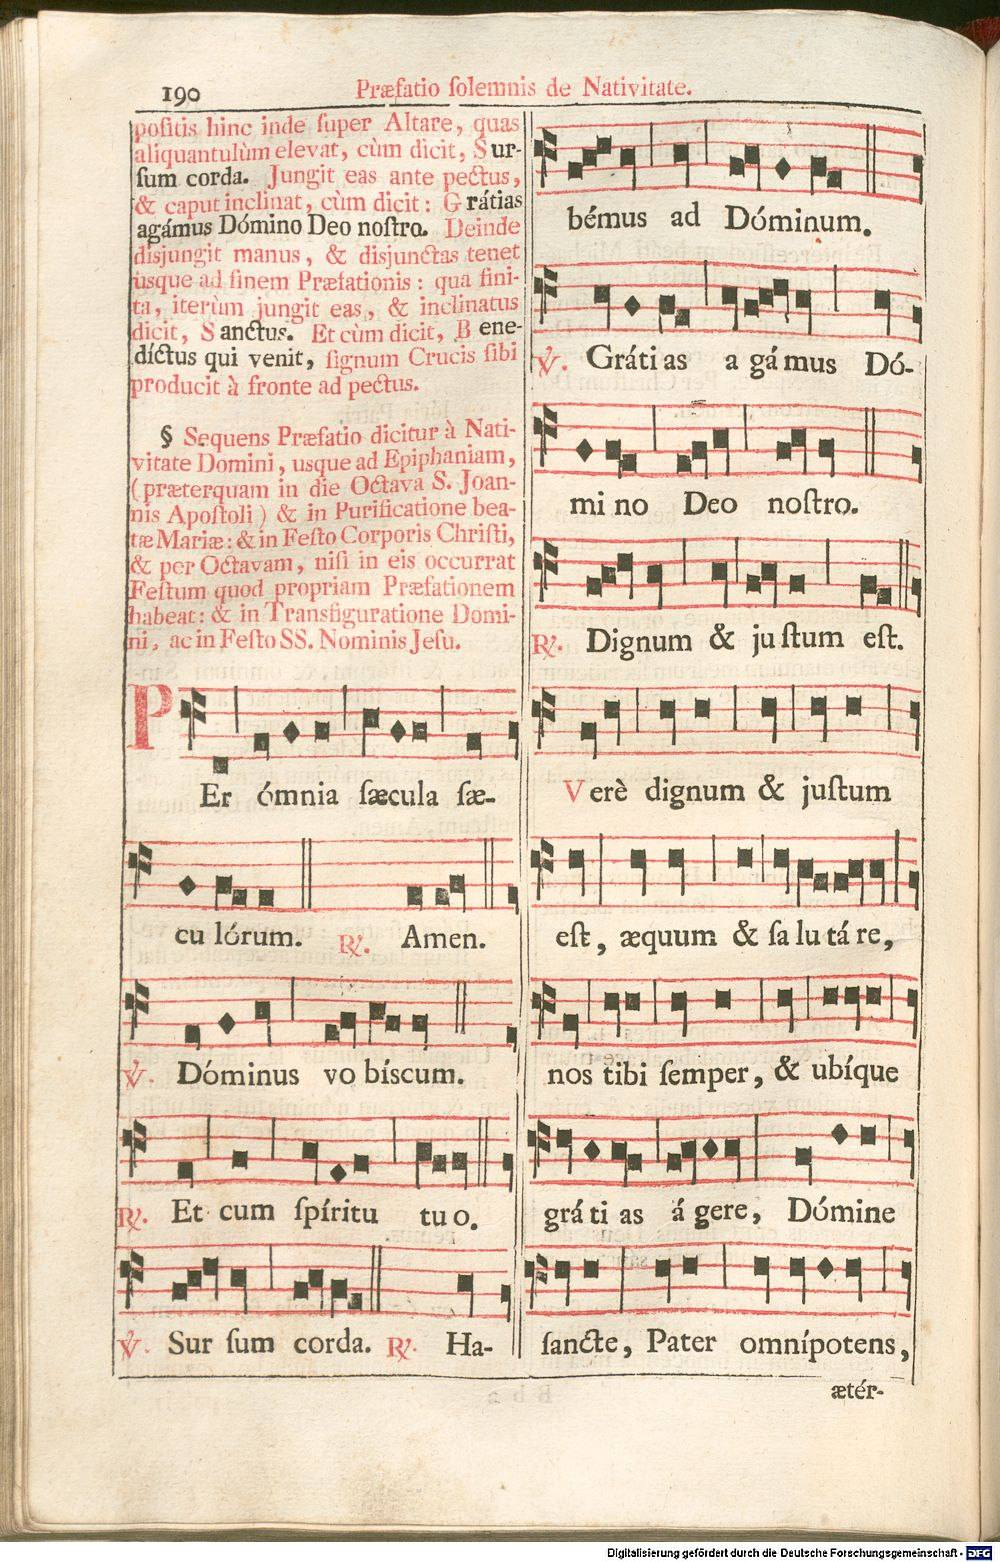 190
Præfatio ſolemnis de Nativitate.
poſitis hinc inde ſuper Altare, quas
aliquantulùm elevat, cùm dicit, Sur-
ſum corda. Jungit eas ante pectus,
& caput inclinat, cùm dicit: Grátias
agámus Dómino Deo noſtro. Deinde
disjungit manus, & disjunctas tenet
uſque ad finem Præfationis: qua fini-
ta, iterùm jungit eas, & inclinatus
dicit, Sanctus. Et cùm dicit, Bene-
díctus qui venit, ſignum Crucis ſibi
producit à fronte ad pectus.
§ Sequens Præfatio dicitur à Nati-
vitate Domini, uſque ad Epiphaniam,
(præterquam in die Octava S. Joan-
nis Apoſtoli) & in Purificatione bea-
tæ Mariæ: & in Feſto Corporis Chriſti,
& per Octavam, niſi in eis occurrat
Feſtum quod propriam Præfationem
habeat: & in Transfiguratione Domi-
ni, ac in Feſto SS. Nominis Jeſu.
PEr ómnia ſæcula ſæ-
cu lórum. ℟. Amen.
℣. Dóminus vo bíscum.
℟. Et cum ſpíritu tu o.
℣. Sur ſum corda. ℟. Ha-
bémus ad Dóminum.
℣. Gráti as a gá mus Dó-
mi no Deo noſtro.
℟. Dignum & ju ſtum eſt.
Verè dignum & juſtum
eſt, æquum & ſa lu tá re,
nos tibi ſemper, & ubíque
grá ti as á gere, Dómine
ſancte, Pater omnípotens,
ætér-
Digitalisierung gefördert durch die Deutsche Forschungsgemeinschaft - DFG